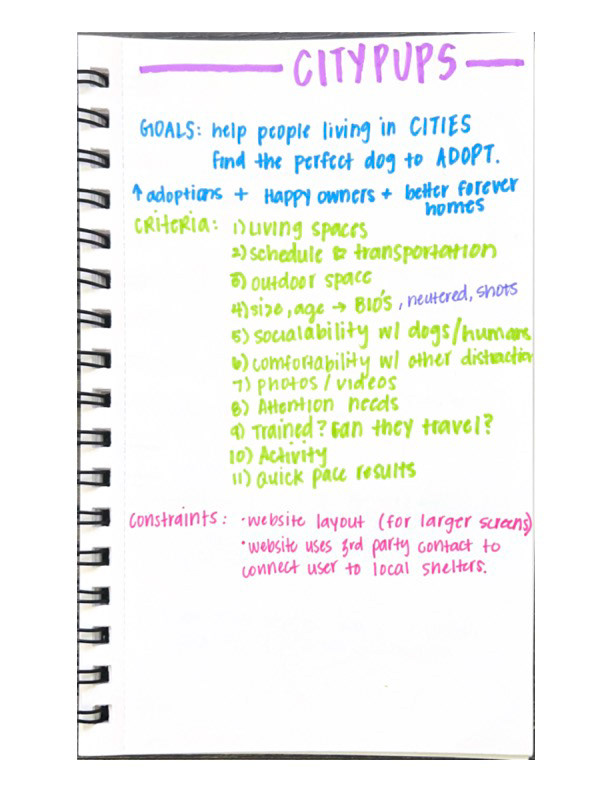 CITYPUPS
GOALS: help people living in CITIES
find the perfect dog to ADOPT.
↑ adoptions + HAPPY owners + better forever
homes
Criteria: 1) Living spaces
2) schedule & transportation
3) outdoor space
4) size, age → BIO'S, neutered, shots
5) socialability w/ dogs/humans
6) comfortability w/ other distraction
7) photos / videos
8) Attention needs
9) Trained? Can they travel?
10) Activity
11) Quick pace results
Constraints: · website layout (for larger screens)
· website uses 3rd party contact to
connect user to local shelters.